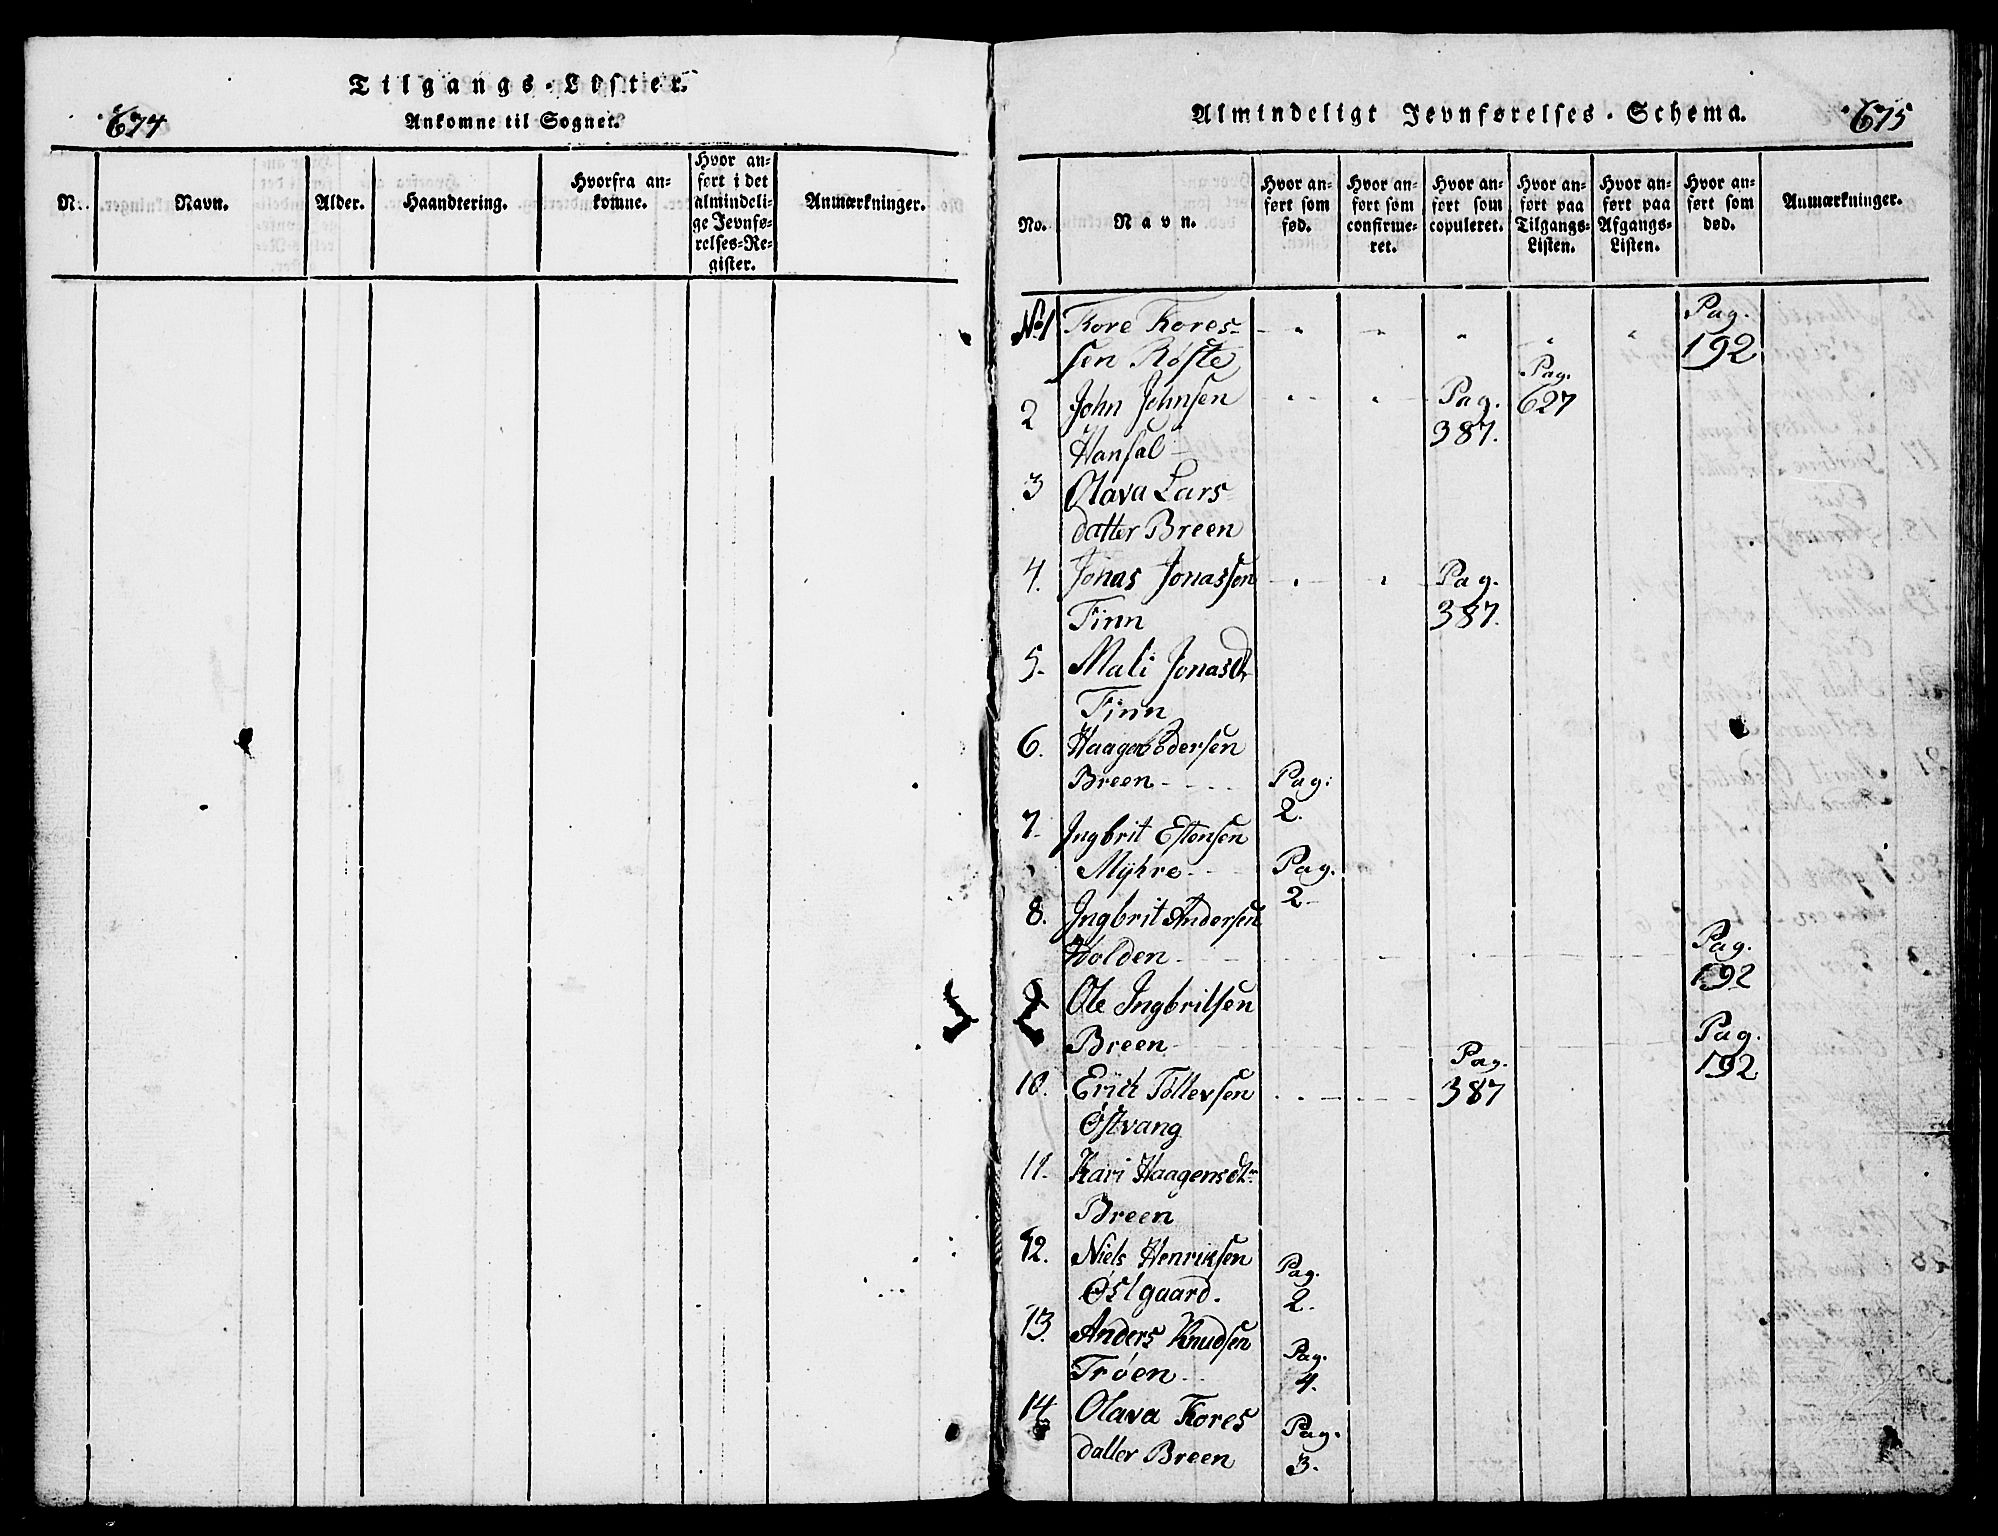 Tilgangs-Lister.
674
Ankomne til Sognet.
N.
Navn.
Alder.
Haandtering.
Hvorfra an-
komne.
Hvor an-
ført i det
almindeli-
ge Jevnfø-
relses-Re-
gister.
Anmærkninger.
Almindeligt Jevnførelses-Schema.
675
No.
Navn.
Hvor an-
ført som
fød.
Hvor an-
ført som
confirme-
ret.
Hvor an-
ført som
copuleret.
Hvor an-
ført paa
Tilgangs-
Listen.
Hvor an-
ført paa
Afgangs-
Listen.
Hvor an-
ført som
død.
Anmærkninger.
No 1 Tore Tores- Pag.
sen Røste 192
2 John Johnsen Pag. Pag. 627
Hansal 387.
3 Olava Lars
datter Breen
4. Jonas Jonassen Pag.
Finn 387.
5. Mali Jonasdr
Finn
6. Haagen Pedersen
Breen Pag. 2.
7. Ingbrit Estensen
Myhre Pag. 2
8. Ingbrit Andersen
Holden Pag. 192
9 Ole Ingbritsen
Breen Pag. 192
10. Erich Tollevsen Pag. 387
Østvang
11. Kari Haagensdtr
Breen
12. Niels Henriksen Pag.
Østgaard. 2.
13. Anders Knudsen Pag.
Trøen 4.
14 Olava Tores Pag.
datter Breen 3.